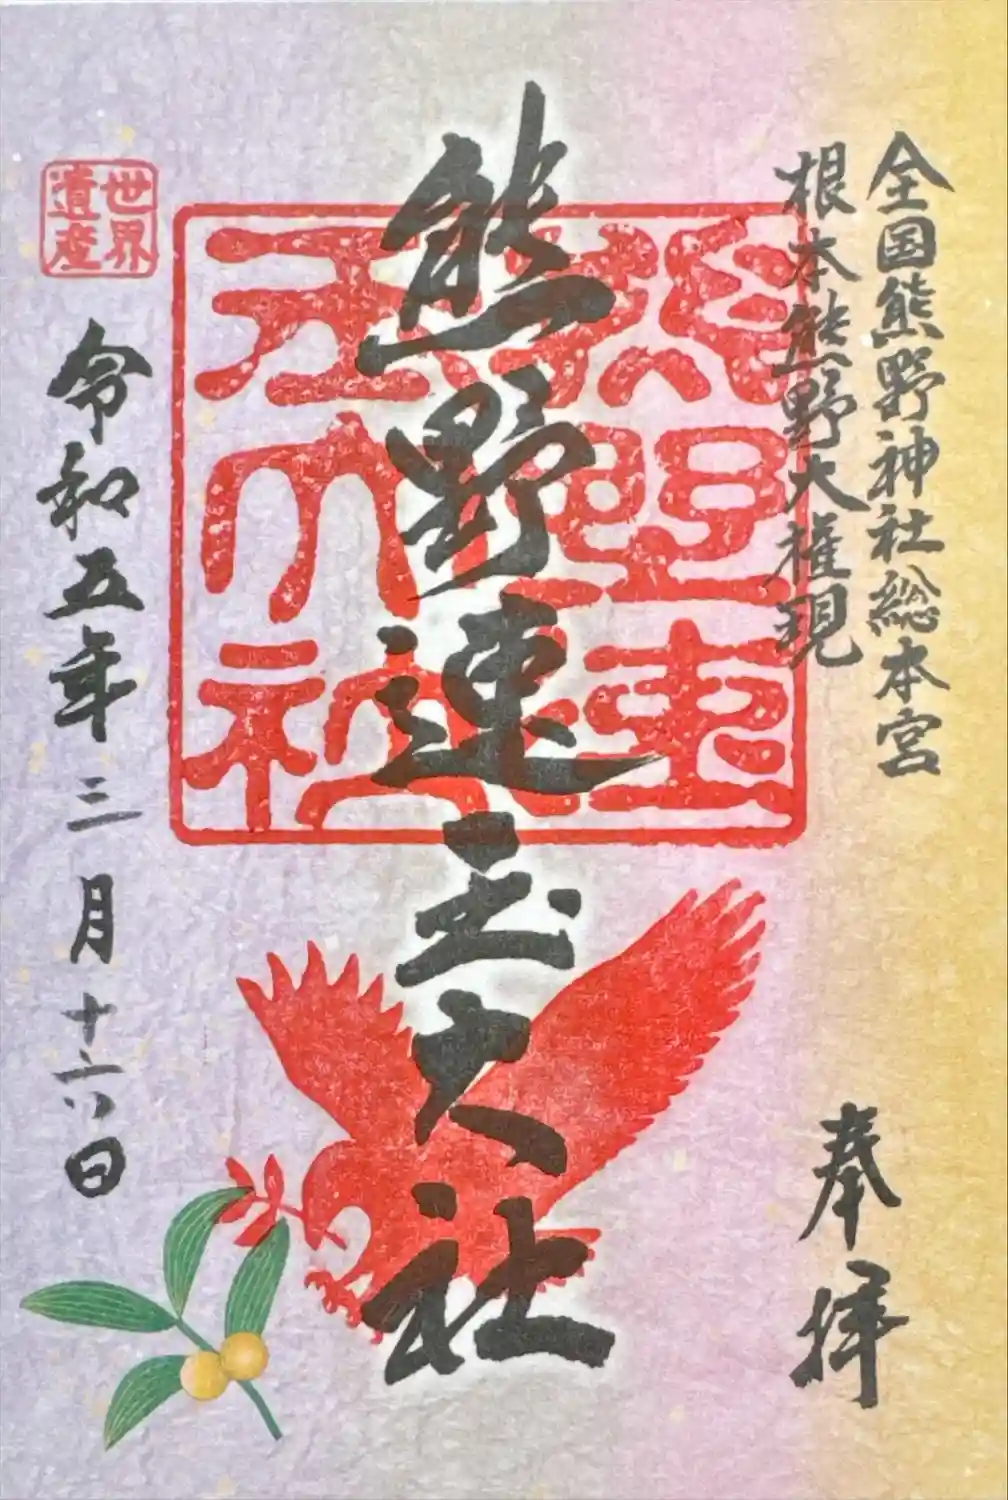 全国熊野神社総本宮
根本熊野大権現
奉拝
熊野速玉大社
世界
遺産
令和五年三月十六日